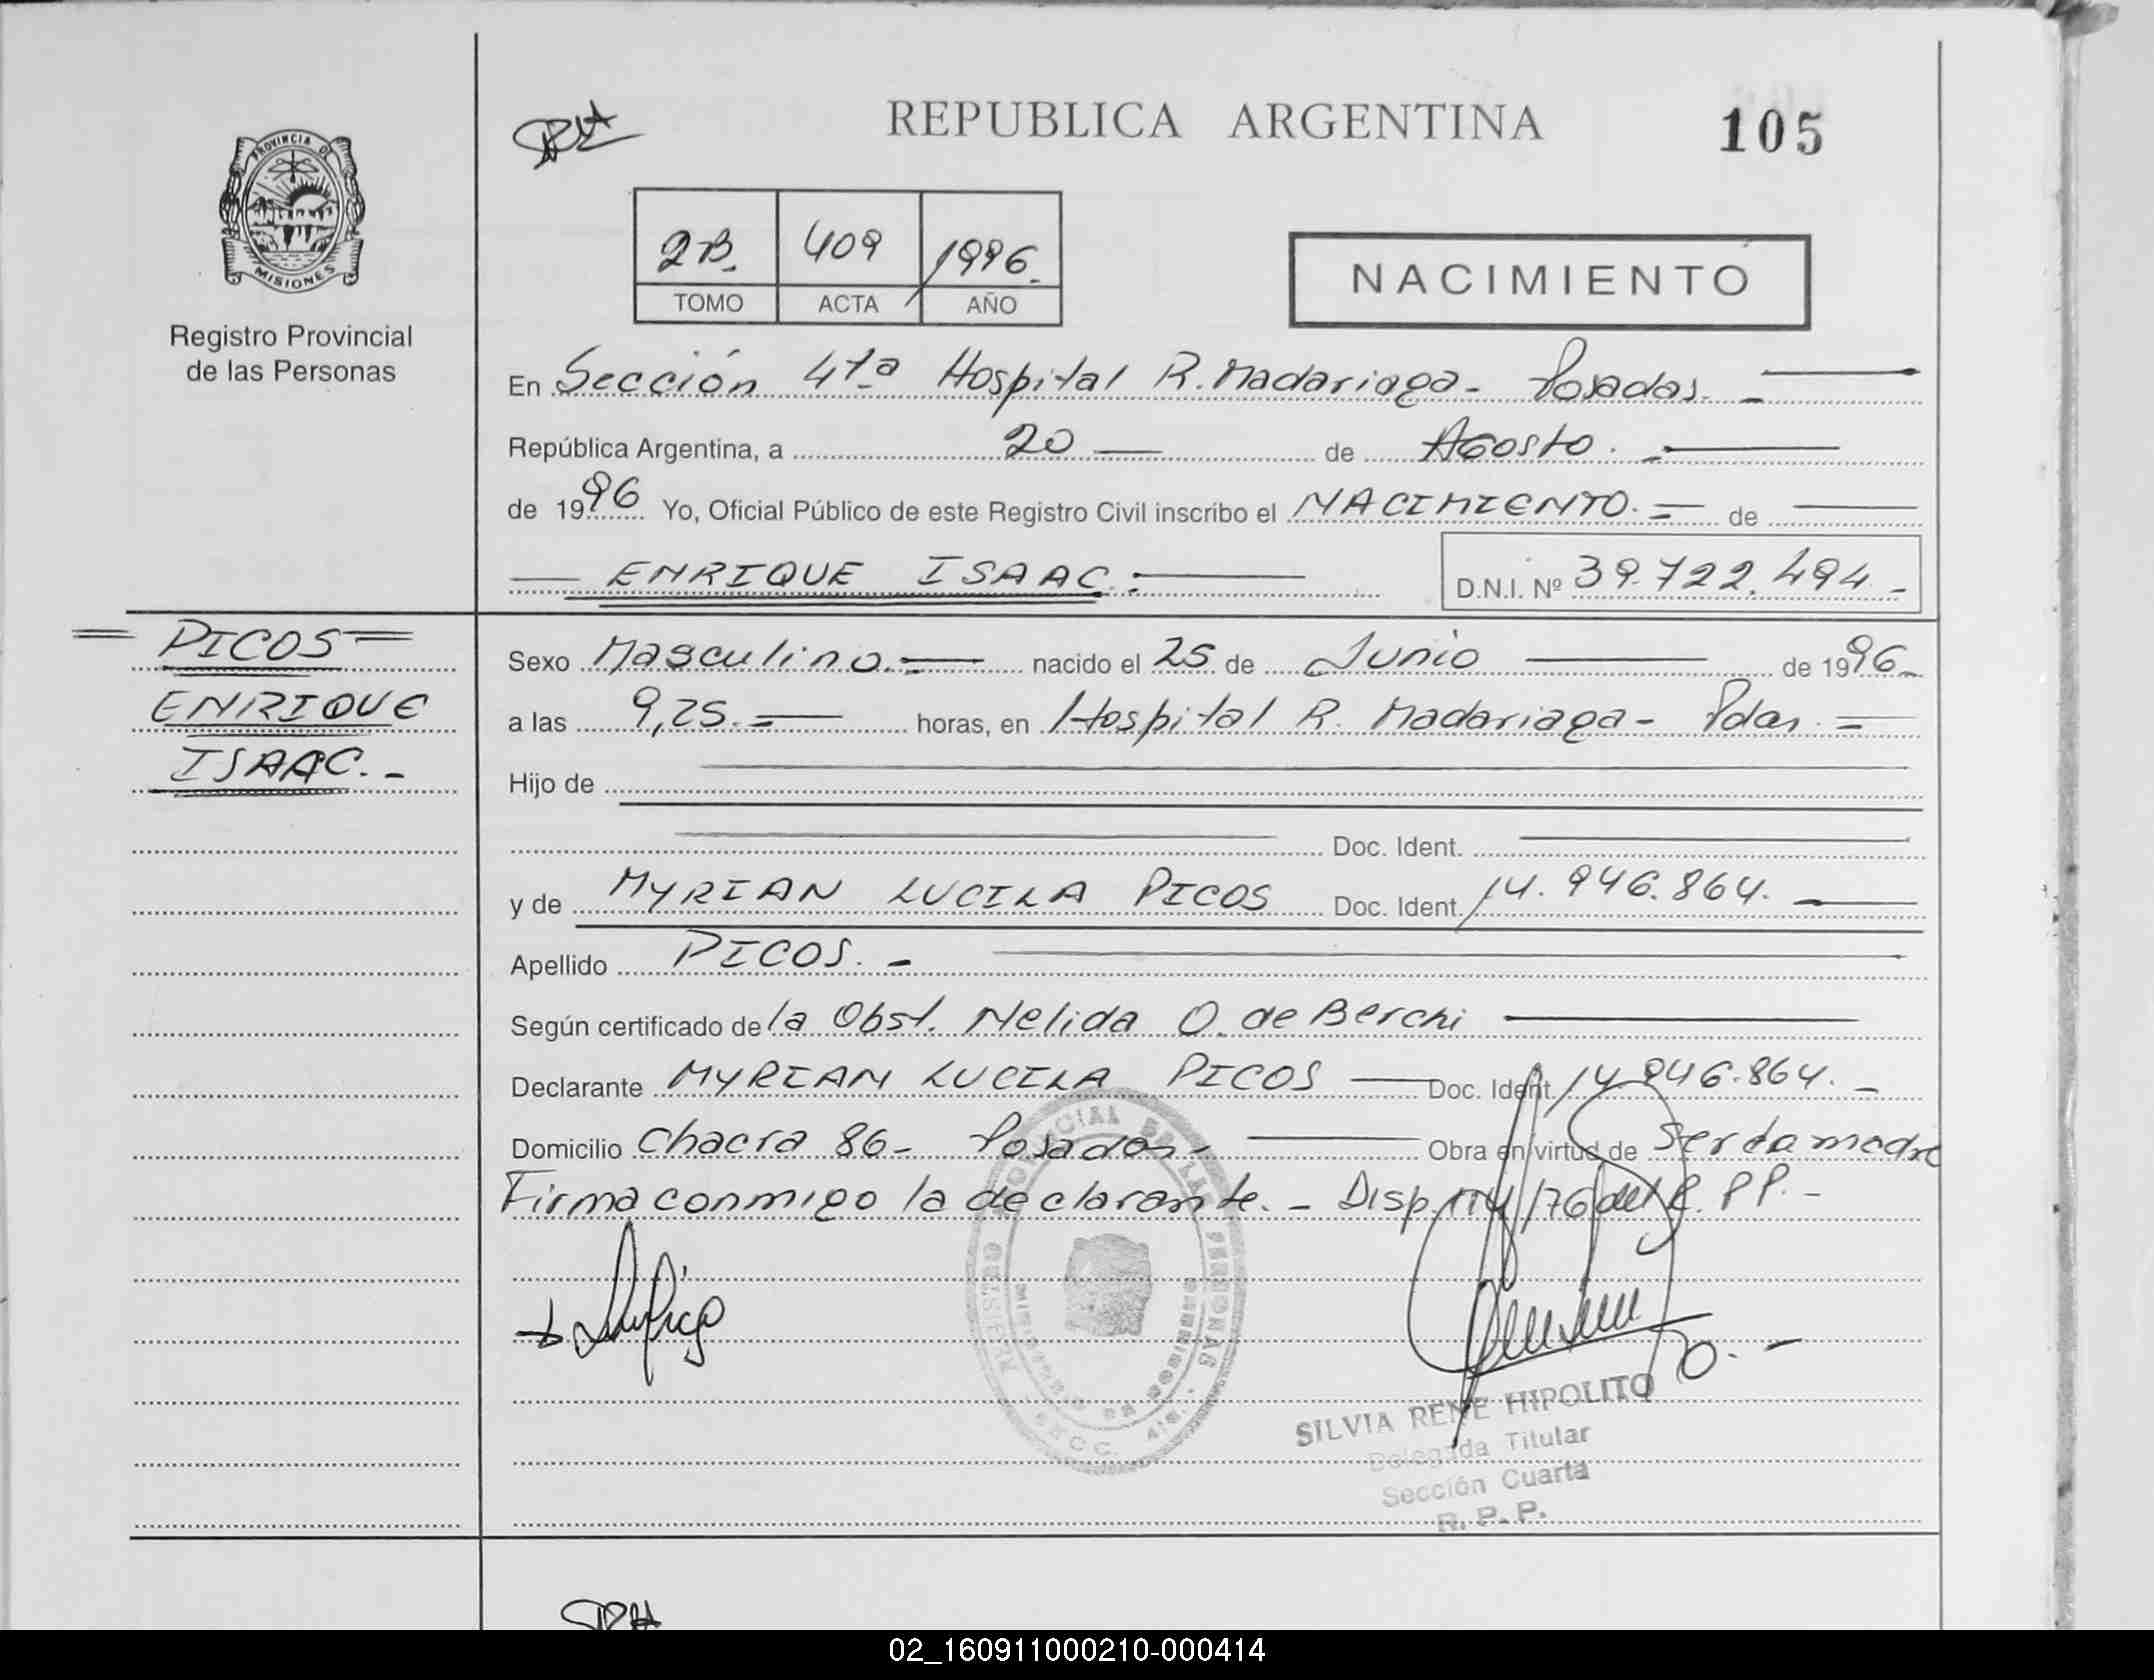 REPUBLICA ARGENTINA
105
PROVINCIA DE
MISIONES
Registro Provincial
de las Personas
2B. 409 1996.
TOMO ACTA AÑO
NACIMIENTO
En Sección 4ta Hospital R. Madariaga - Posadas. -
República Argentina, a 20 de Agosto.
de 1996 Yo, Oficial Público de este Registro Civil inscribo el NACIMIENTO. de
ENRIQUE ISAAC. D.N.I. Nº 39.722.494 -
PICOS
ENRIQUE
ISAAC. -
Sexo Masculino. nacido el 25 de Junio de 1996
a las 9,25. horas, en Hospital R. Madariaga - Pdas.
Hijo de
Doc. Ident.
y de MYRIAN LUCILA PICOS Doc. Ident. 14.946.864. -
Apellido PICOS. -
Según certificado de la Obst. Nelida O. de Berchi
Declarante MYRIAN LUCILA PICOS Doc. Ident. 14.946.864. -
Domicilio Chacra 86 - Posadas - Obra en virtud de Ser la madre
Firma conmigo la declarante. - Disp. 114/76 del R.P.P. -
SILVIA RENE HIPOLITO
Delegada Titular
Sección Cuarta
R. P. P.
02_160911000210-000414